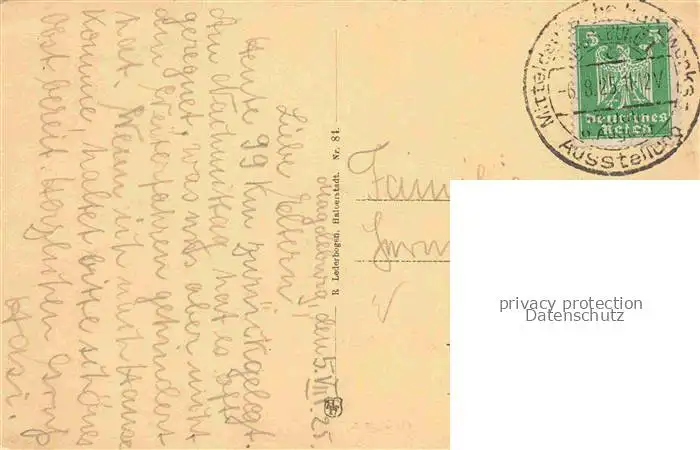 Magdeburg, den 5. VIII. 25.
Liebe Eltern!
Heute 99 Km zurückgelegt.
Am Nachmittag hat es oft
geregnet, was uns aber nicht
am Weiterfahren gehindert
hat. Wenn ich nach Hause
komme, haltet bitte schönes
Obst bereit. Herzlichen Gruß
Hasi.
R. Lederbogen, Halberstadt. Nr. 84.
Familie
5 5
Deutsches
Reich
Mitteldeutsche Handwerks-
Ausstellung
-6.8.25.11-12V
privacy protection
Datenschutz